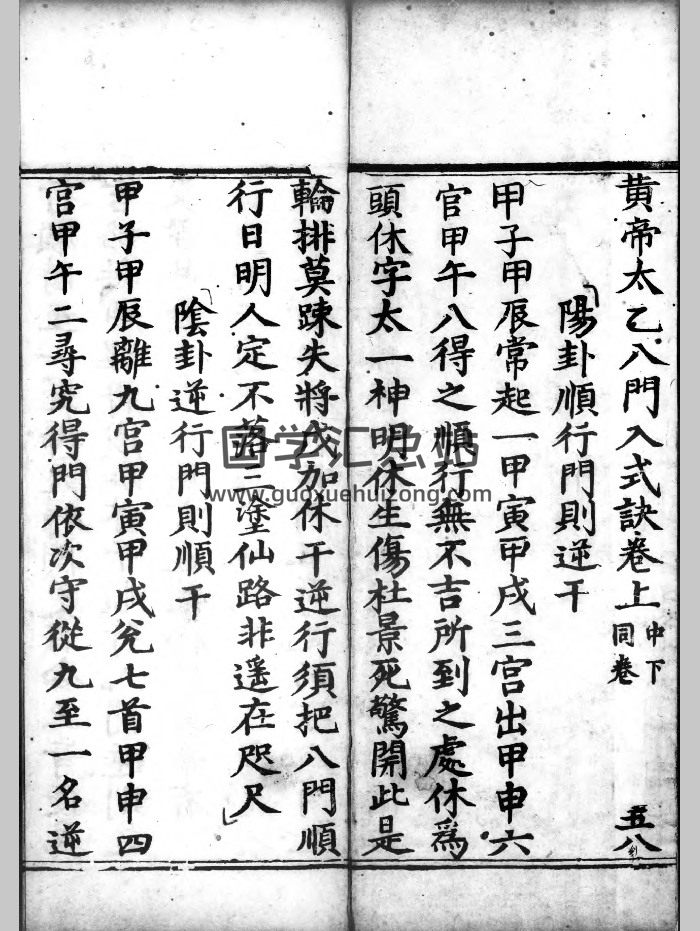 黄帝太乙八門入式訣卷上 中下同卷 五八
陽卦順行門則逆干
甲子甲辰常起一甲寅甲戌三宫出甲申六
官甲午八得之順行無不吉所到之處休爲
頭休字太一神明休生傷杜景死驚開此是
輪排莫踈失將戊加休干逆行須把八門順
行日明人定不落三塗仙路非遥在咫尺
陰卦逆行門則順干
甲子甲辰離九宫甲寅甲戌兊七首甲申四
宫甲午二尋究得門依次守從九至一名逆
国学汇总站
www.guoxuehuizong.com